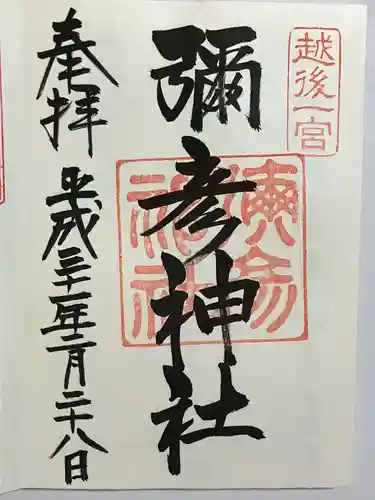 越後一宮
彌彦神社
奉拝
平成三十一年二月二十八日